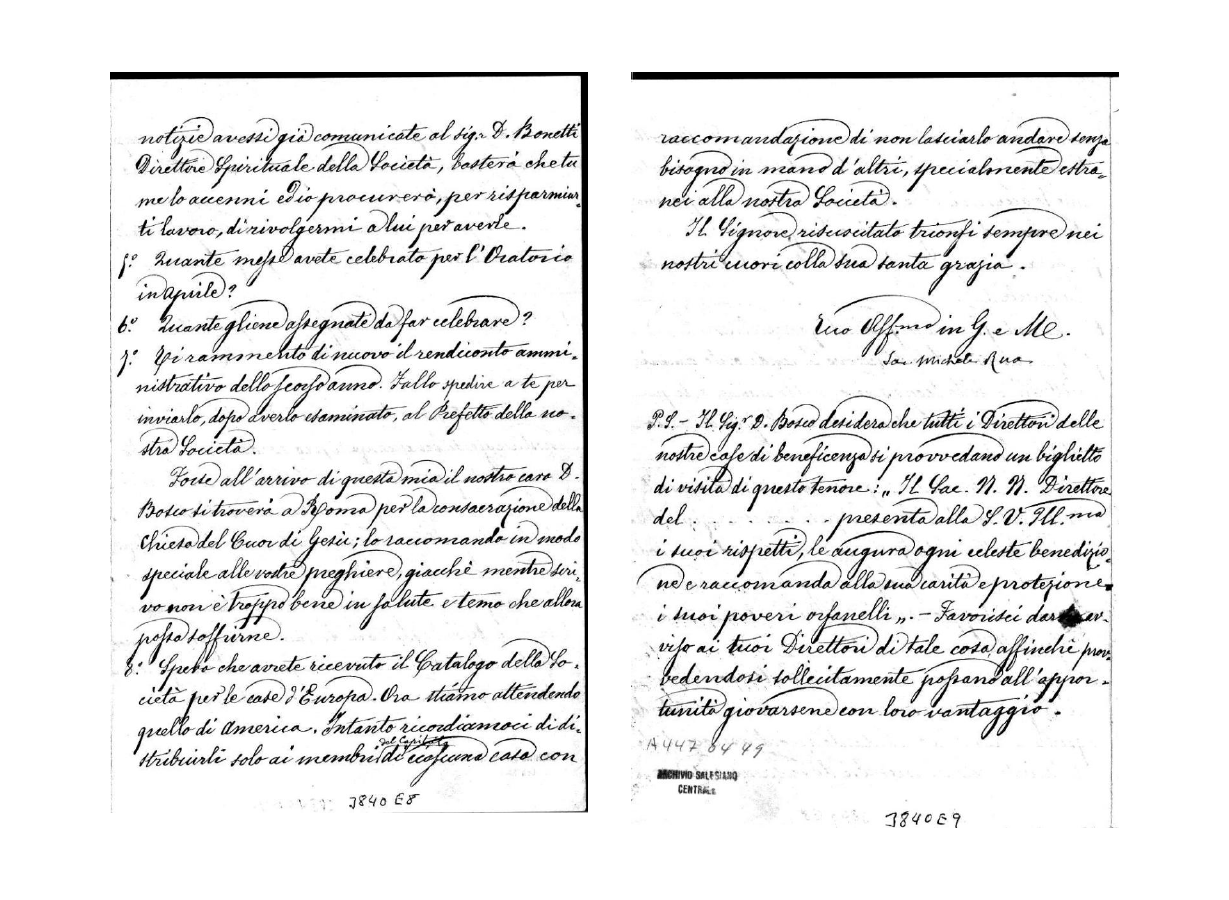 notizie avessi già comunicate al sig.r D. Bonetti
Direttore Spirituale della Società, basterà che tu
me lo accenni ed io procurerò, per risparmiar-
ti lavoro, di rivolgermi a lui per averle.
5.° Quante messe avete celebrato per l'Oratorio
in Aprile?
6.° Quante gliene assegnate da far celebrare?
7.° Ti rammento di nuovo il rendiconto ammi-
nistrativo dello scorso anno. Fallo spedire a te per
inviarlo, dopo averlo esaminato, al Prefetto della no-
stra Società.
Forse all'arrivo di questa mia il nostro caro D.
Bosco si troverà a Roma per la consacrazione della
Chiesa del Cuor di Gesù; lo raccomando in modo
speciale alle vostre preghiere, giacchè mentre scri-
vo non è troppo bene in salute e temo che allora
possa soffrirne.
8.° Spero che avrete ricevuto il Catalogo della So-
cietà per le case d'Europa. Ora stiamo attendendo
quello di America. Intanto ricordiamoci di di-
stribuirli solo ai membri del Capitolo di ciascuna casa con
J840 E8
raccomandazione di non lasciarlo andare senza
bisogno in mano d'altri, specialmente estra-
nei alla nostra Società.
Il Signore risuscitato trionfi sempre nei
nostri cuori colla sua santa grazia.
Tuo Aff.mo in G. e M.
Sac. Michele Rua
P.S. - Il Sig.r D. Bosco desidera che tutti i Direttori delle
nostre case di beneficenza si provvedano un biglietto
di visita di questo tenore: „Il Sac. N. N. Direttore
del . . . . . . . . presenta alla S. V. Ill.ma
i suoi rispetti, le augura ogni celeste benedizio-
ne e raccomanda alla sua carità e protezione
i suoi poveri orfanelli„. - Favorisci dar av-
viso ai tuoi Direttori di tale cosa, affinchè prov-
vedendosi sollecitamente possano all'oppor-
tunità giovarsene con loro vantaggio.
A447 04 49
ARCHIVIO SALESIANO
CENTRALE
J840E9